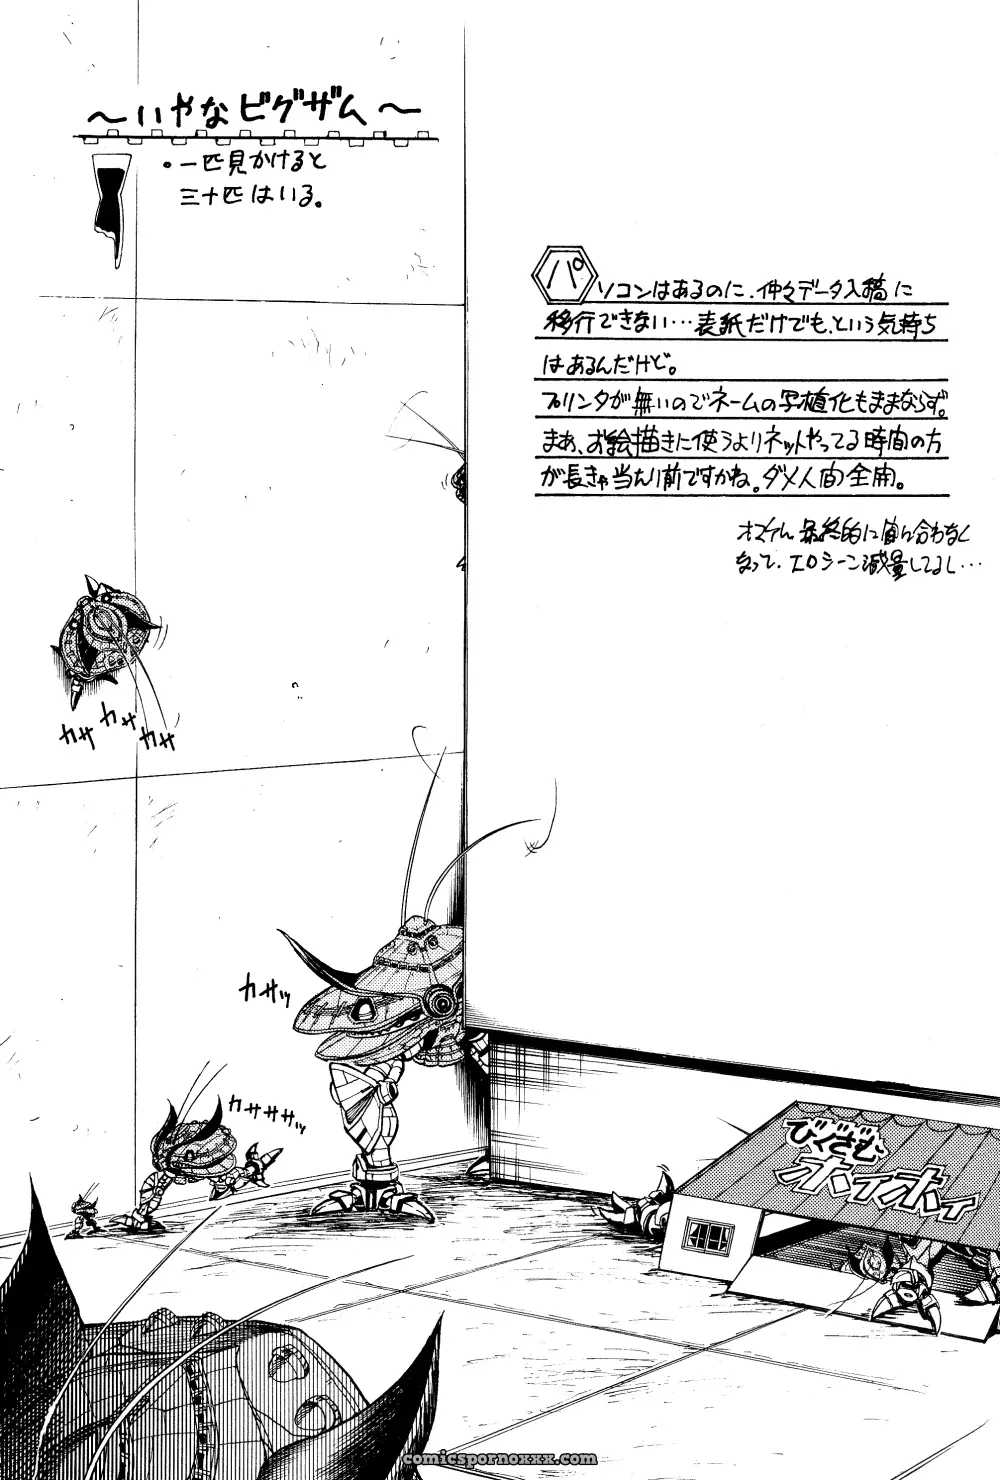 ～いやなビグザム～
・一匹見かけると
三十匹はいる。
パソコンはあるのに、仲々データ入稿に
移行できない…表紙だけでも、という気持ち
はあるんだけど。
プリンタが無いのでネームの写植化もままならず。
まあ、お絵描きに使うよりネットやってる時間の方
が長きゃ当たり前ですかね。ダメ人間全開。
オマケに最終的に間に合わなく
なって、エロシーン減量してるし…
カサ カサ カサ
カサッ
カササササッ
びぐざむ
ホイホイ
comicspornoxxx.com